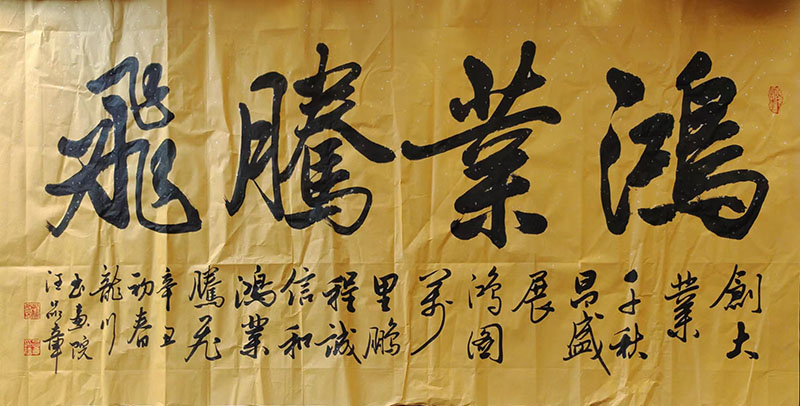 鴻業騰飛
創大
業
千秋
昌盛
展
鴻圖
萬
里鵬
程誠
信和
鴻業
騰飛
辛丑
初春
龍川
書畫院
汪品章